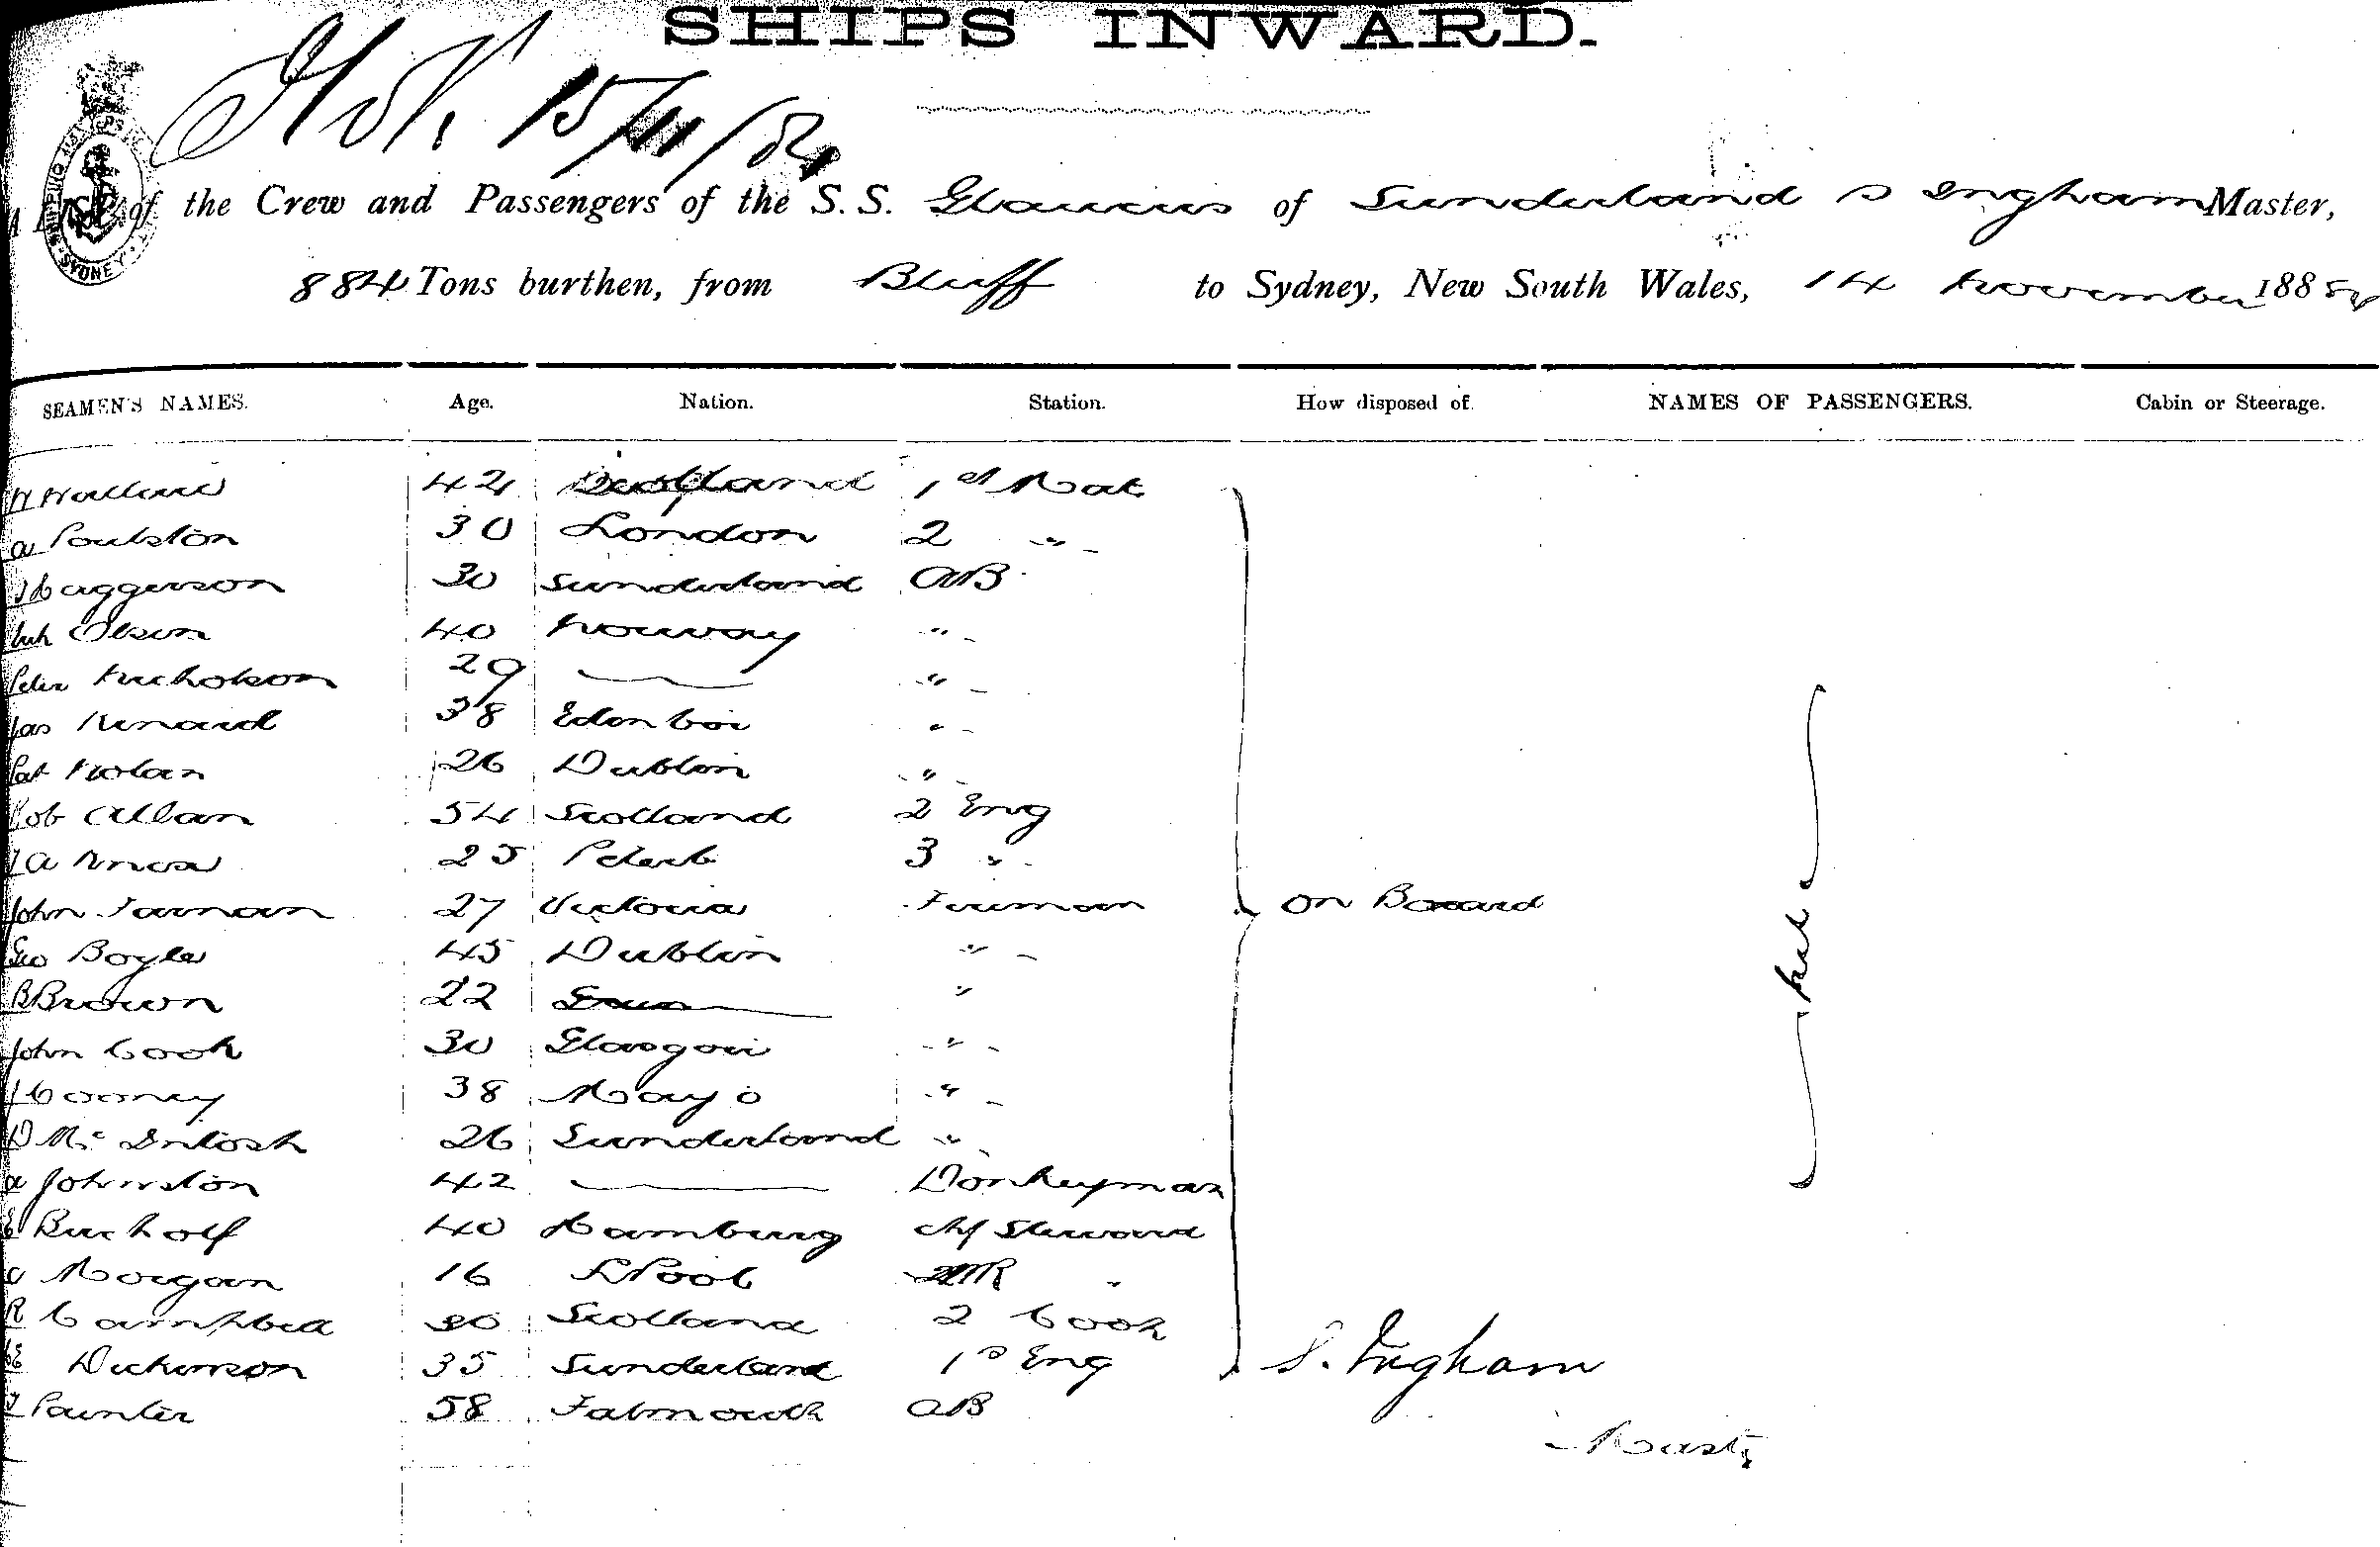 SHIPS INWARD.
15/11/84
LIST of the Crew and Passengers of the S.S. Glaucus of Sunderland S Ingham Master,
884 Tons burthen, from Bluff to Sydney, New South Wales, 14 November 1884
SEAMEN'S NAMES. Age. Nation. Station. How disposed of. NAMES OF PASSENGERS. Cabin or Steerage.
42 1st Mate
A Poulston 30 London 2 "
Haggerson 30 Sunderland AB
Olsen 40 Norway "
Peter Nicholson 29 — "
Jas Kinnaird 38 "
Pat Nolan 26 Dublin "
Rob Allan 54 Scotland 2 Eng
25 3 "
John Farnan 27 Victoria Fireman On Board
Geo Boyle 45 Dublin "
B Brown 22 "
John Cook 30 Glasgow "
J Cooney 38 Mayo "
D McIntosh 26 Sunderland "
A Johnston 42 — Donkeyman
E Bucholf 40 Hamburg Chf Steward
C Morgan 16 LPool "
R Campbell 30 Scotland 2 Cook
Dickinson 35 Sunderland 1st Eng S. Ingham
T Painter 58 Falmouth AB
Master
Nil
SYDNEY